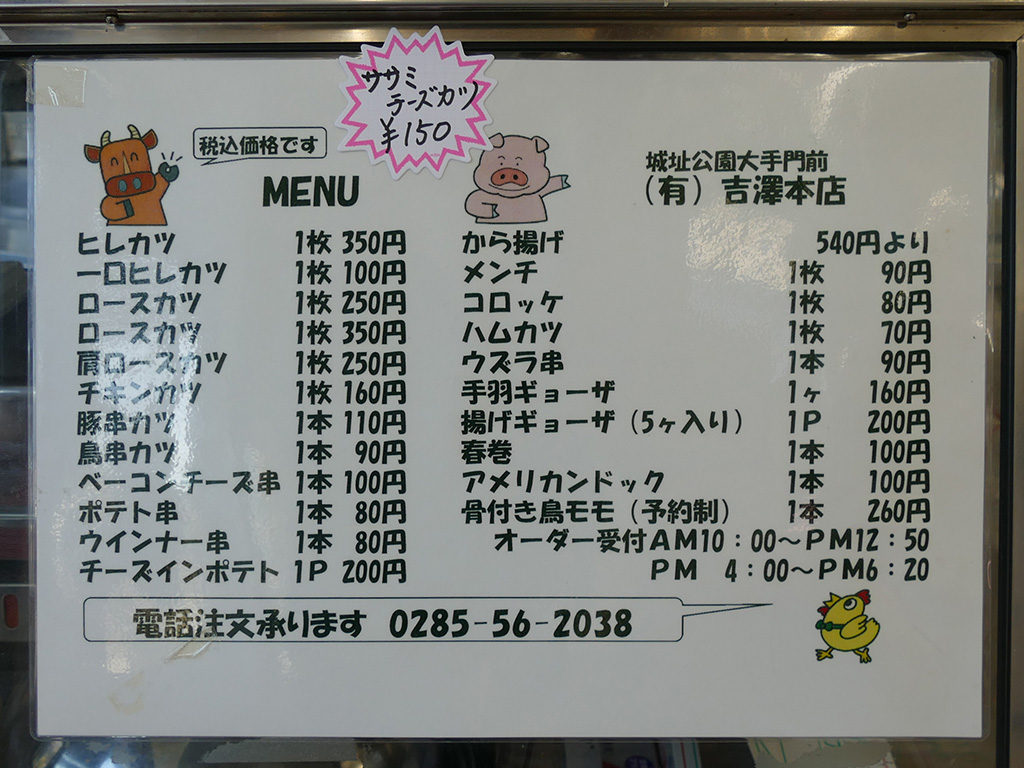 ササミ
チーズカツ
¥150
税込価格です
MENU
城址公園大手門前
（有）吉澤本店
ヒレカツ 1枚 350円
一口ヒレカツ 1枚 100円
ロースカツ 1枚 250円
ロースカツ 1枚 350円
肩ロースカツ 1枚 250円
チキンカツ 1枚 160円
豚串カツ 1本 110円
鳥串カツ 1本 90円
ベーコンチーズ串 1本 100円
ポテト串 1本 80円
ウインナー串 1本 80円
チーズインポテト 1P 200円
から揚げ 540円より
メンチ 1枚 90円
コロッケ 1枚 80円
ハムカツ 1枚 70円
ウズラ串 1本 90円
手羽ギョーザ 1ヶ 160円
揚げギョーザ（5ヶ入り） 1P 200円
春巻 1本 100円
アメリカンドック 1本 100円
骨付き鳥モモ（予約制） 1本 260円
オーダー受付AM10：00～PM12：50
PM 4：00～PM6：20
電話注文承ります 0285-56-2038